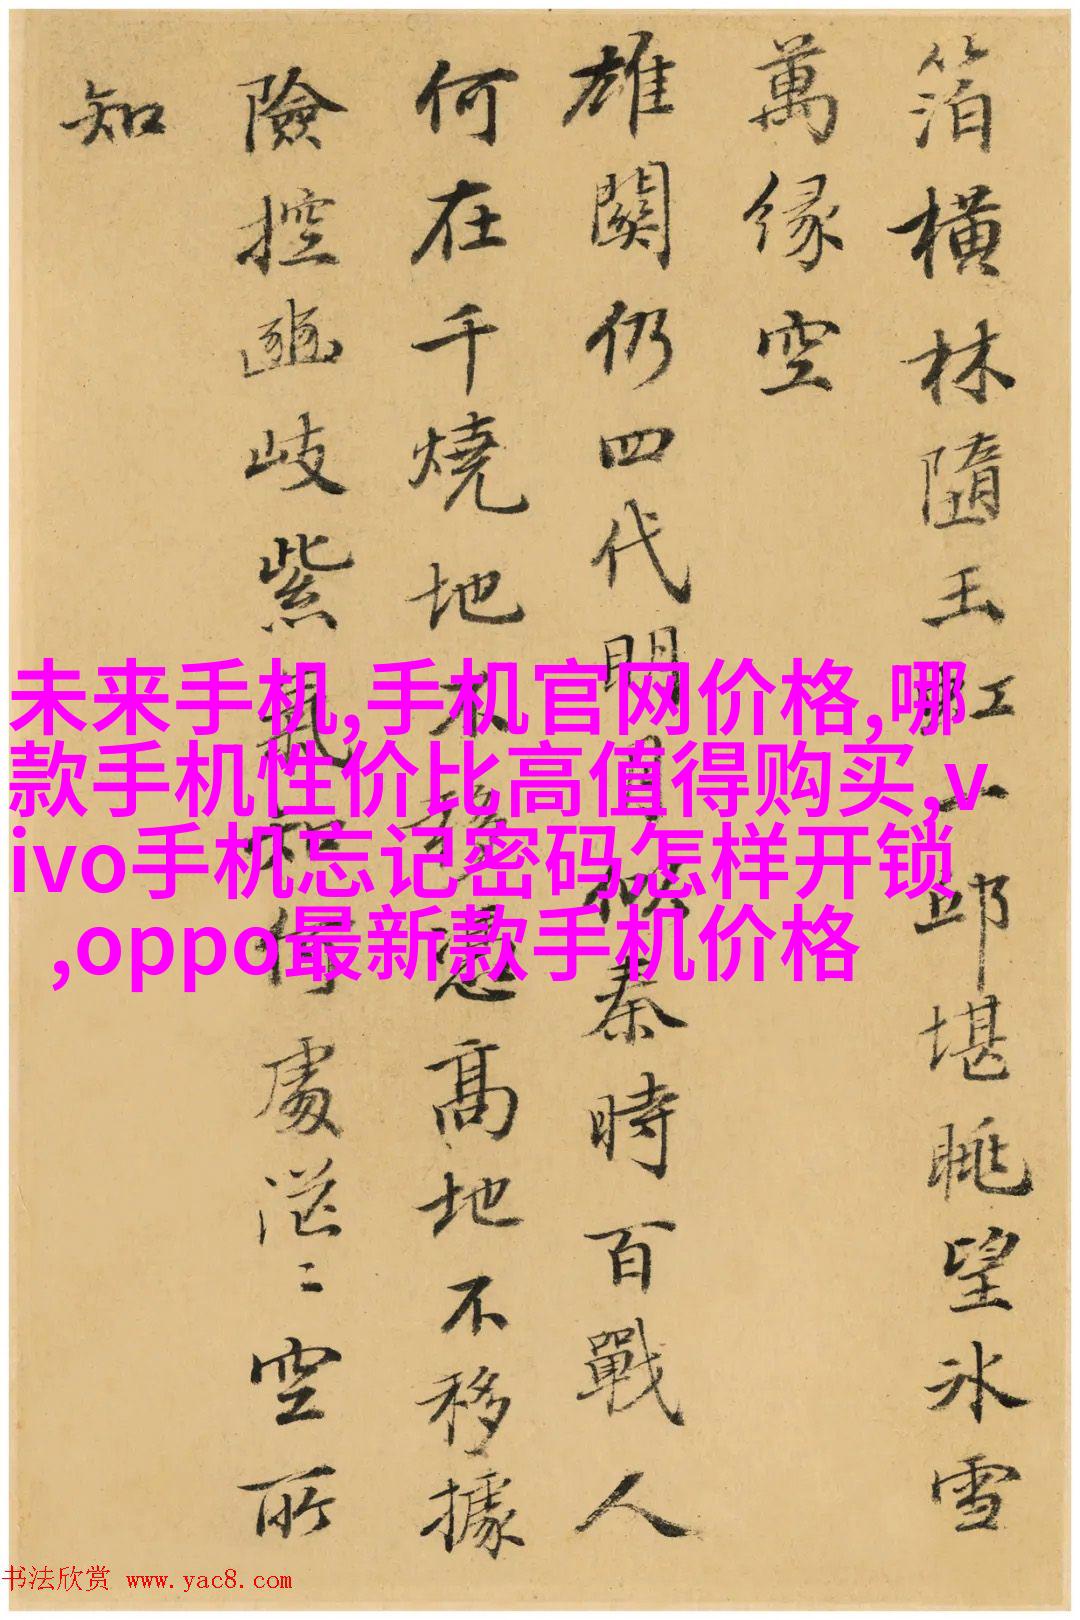 箔橫林隨玉虹一邱堪眺望冰雪
萬緣空
雄關仍四代明月似秦時百戰人
何在千燒地不移憑高地不移據
險控豳岐紫氣知何處茫〻空所
知
未来手机,手机官网价格,哪
款手机性价比高值得购买,v
ivo手机忘记密码怎样开锁
,oppo最新款手机价格
书法欣赏 www.yac8.com